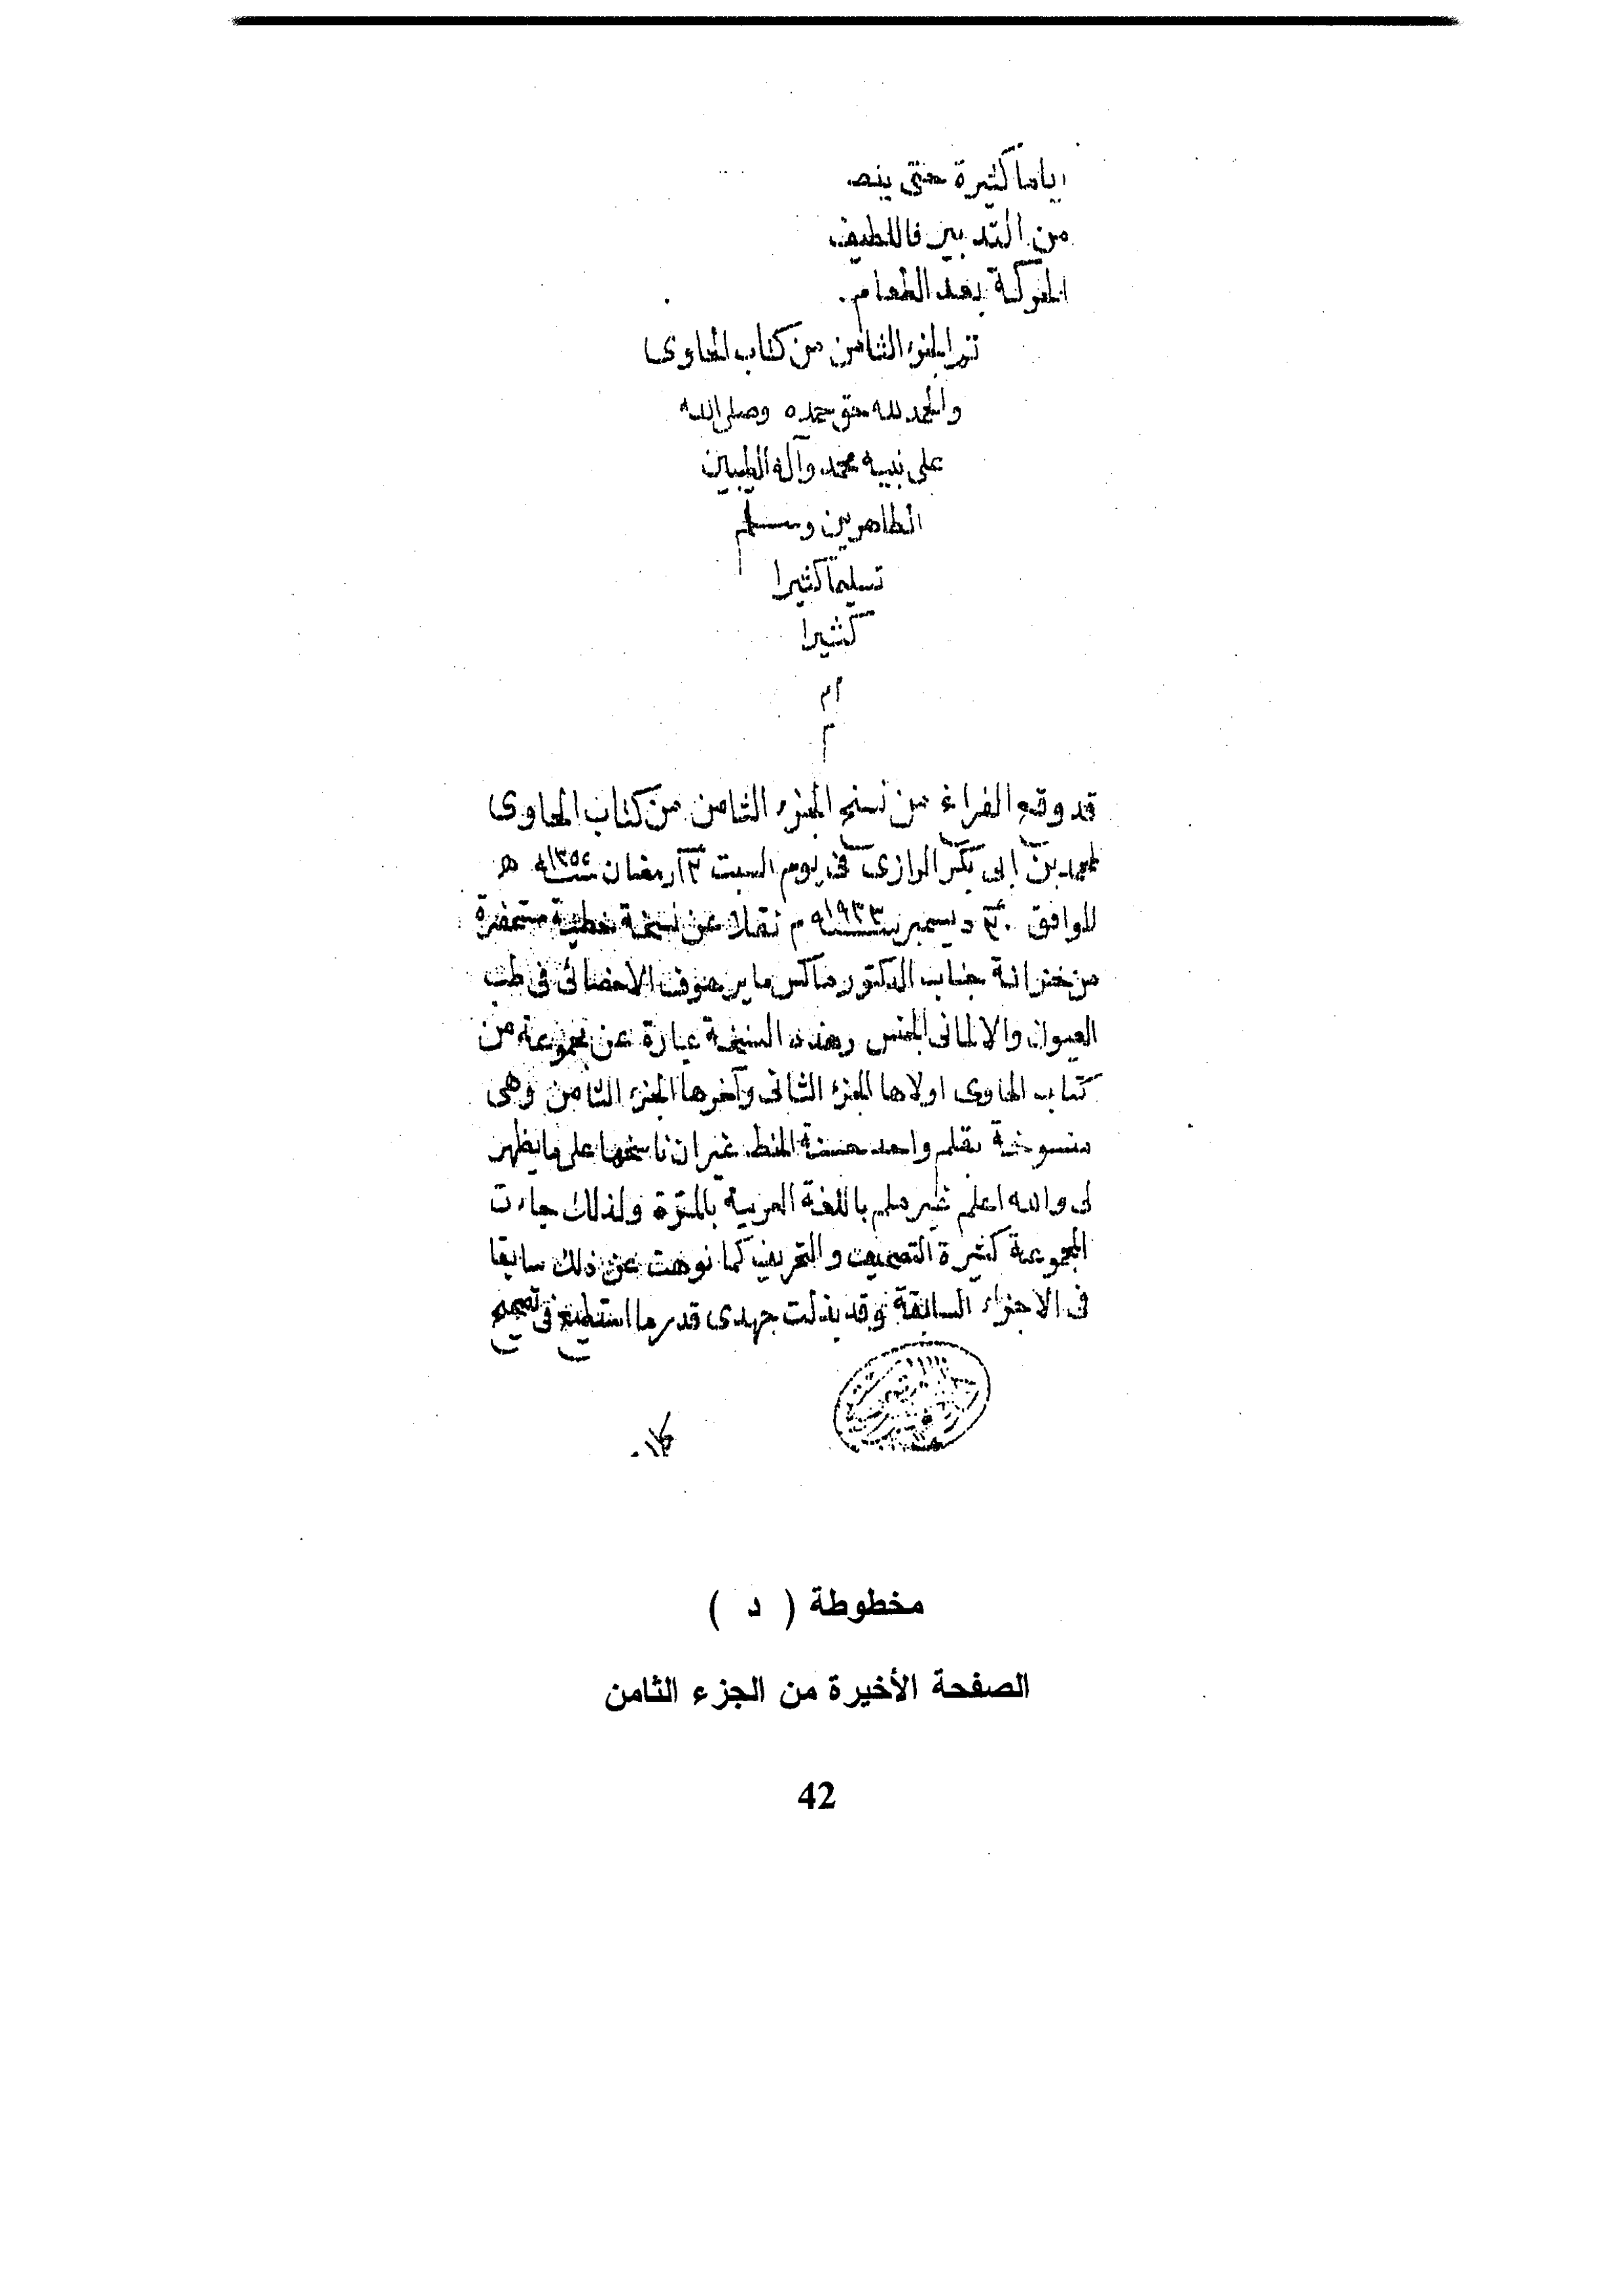 اياما كثيرة حتى ينص
من التدبير فاللطيف
الحركة بعد الطعام.
تم الجزء الثامن من كتاب الحاوى
والحمد لله حق حمده وصلى الله
على نبيه محمد وآله الطيبين
الطاهرين وسلم
تسليما كثيرا
كثيرا
ام
قد وقع الفراغ من نسخ الجزء الثامن من كتاب الحاوى
لمحمد بن ابى بكر الرازى فى يوم السبت ١٣ رمضان سنة ١٣٥٢ ه
الموافق ٣٠ ديسمبر سنة ١٩٣٣ م نقلا عن نسخة خطية مستحضرة
من خزانة جناب الدكتور ماكس مايرهوف الاخصائى فى طب
العيون والالمانى الجنس وهذه النسخة عبارة عن مجموعة من
كتاب الحاوى اولاها الجزء الثانى وآخرها الجزء الثامن وهى
منسوخة بقلم واحد حسنة الخط غير ان ناسخها على ما يظهر
لى والله اعلم غير ملم باللغة العربية بالمرة ولذلك جاءت
المجموعة كثيرة التصحيف والتحريف كما نوهت عن ذلك سابقا
فى الاجزاء السابقة وقد بذلت جهدى قدر ما استطيع فى تصحيح
مخطوطة ( د )
الصفحة الأخيرة من الجزء الثامن
42